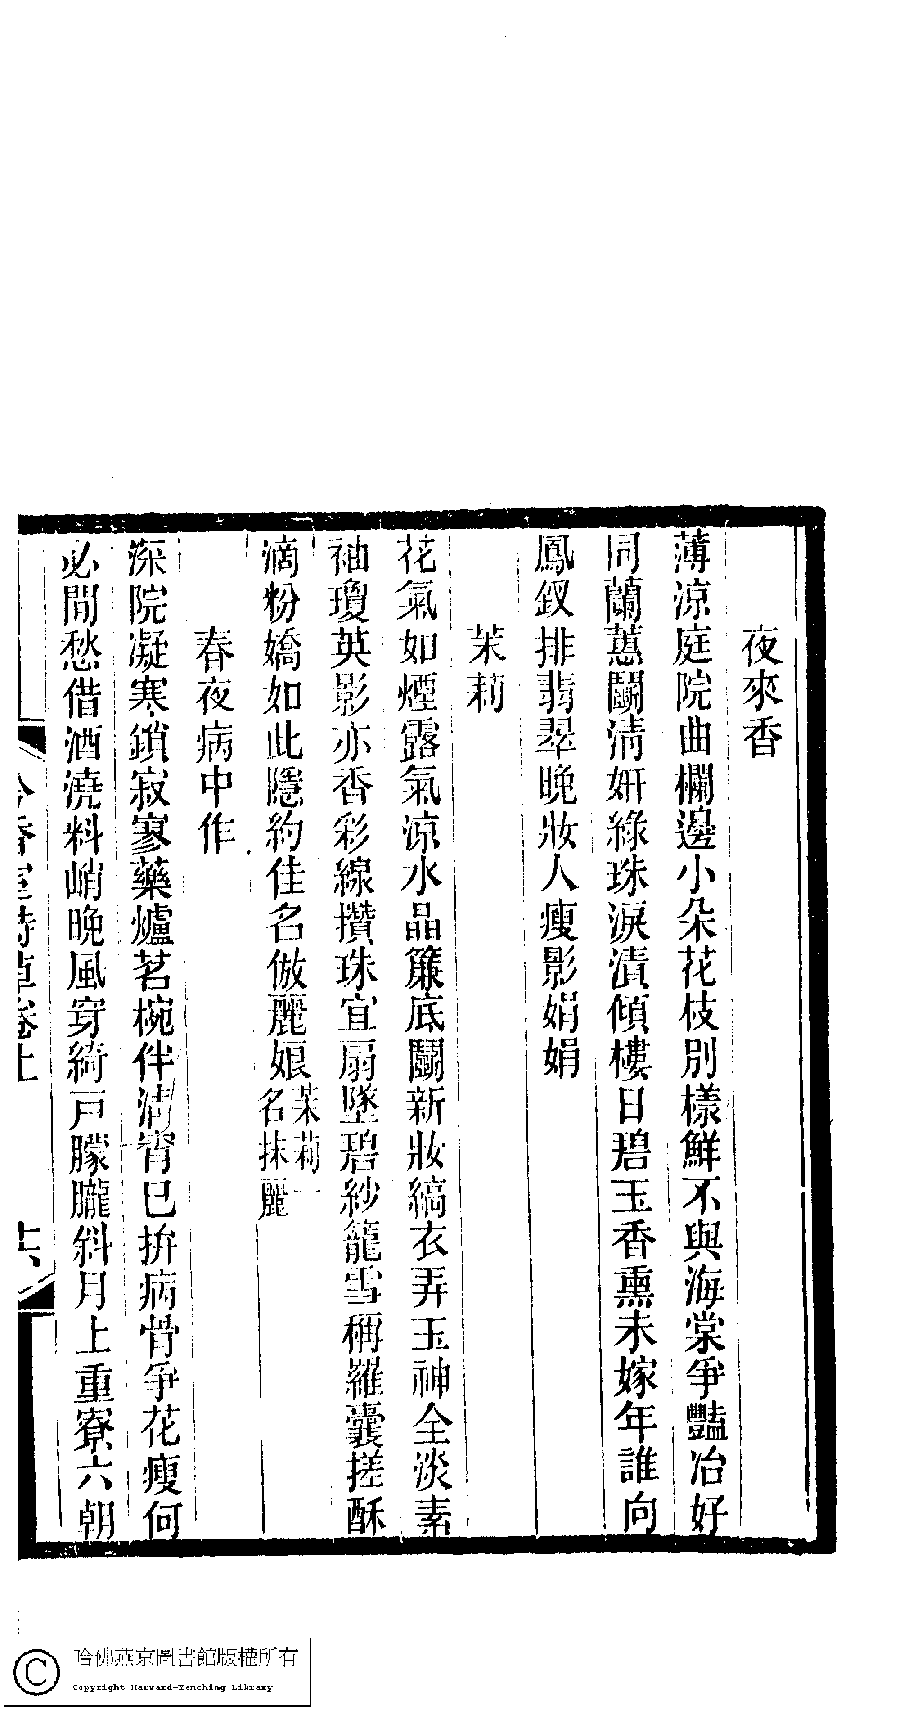 夜來香
薄涼庭院曲欄邊小朵花枝別樣鮮不與海棠爭豔冶好
同蘭蕙鬬清妍綠珠淚漬傾樓日碧玉香熏未嫁年誰向
鳳釵排翡翠晚妝人瘦影娟娟
茉莉
花氣如煙露氣涼水晶簾底鬬新妝縞衣弄玉神全淡素
袖瓊英影亦香彩線攢珠宜扇墜碧紗籠雪稱羅囊搓酥
滴粉嬌如此隱約佳名倣麗娘茉莉一名抹麗
春夜病中作
深院凝寒鎖寂寥藥爐茗椀伴清宵已拚病骨爭花瘦何
必閒愁借酒澆料峭晚風穿綺戸朦朧斜月上重寮六朝
冷香室詩草卷上
十六
哈佛燕京圖書館版權所有
Copyright Harvard-Yenching Library